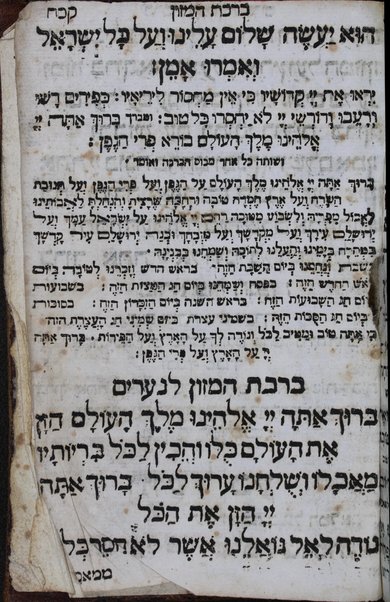 ברכת המזון קכח
הוא יעשה שלום עלינו ועל כל ישראל
ואמרו אמן:
יראו את יי קדושיו כי אין מחסור ליראיו: כפירים רשו
ורעבו ודורשי יי לא יחסרו כל טוב: ברוך אתה יי
אלהינו מלך העולם בורא פרי הגפן:
ושותה כל אחד מכוס הברכה ואומר
ברוך אתה יי אלהינו מלך העולם על הגפן ועל פרי הגפן ועל תנובת
השדה ועל ארץ חמדה טובה ורחבה שרצית והנחלת לאבותינו
לאכול מפריה ולשבוע מטובה רחם יי אלהינו על ישראל עמך ועל
ירושלים עירך ועל מקדשך ועל מזבחך ובנה ירושלים עיר קדשך
במהרה בימינו והעלנו לתוכה ושמחנו בבנינה
שבת ונחמנו ביום השבת הזה: בראש חדש וזכרנו לטובה ביום
ראש החדש הזה: בפסח ושמחנו ביום חג המצות הזה: בשבועות
יום חג השבועות הזה: בראש השנה ביום הזכרון הזה: בסוכות
יום חג הסכות הזה: בשמיני עצרת ביום שמיני חג העצרת הזה
כי אתה טוב ומטיב לכל ונודה לך על הארץ ועל הפירות. ברוך אתה
יי על הארץ ועל פרי הגפן:
ברכת המזון לנערים
ברוך אתה יי אלהינו מלך העולם הזן
את העולם כלו והכין לכל בריותיו
מאכל ושלחנו ערוך לכל. ברוך אתה
יי הזן את הכל
נודה לאל גואלנו אשר לא חסר כל